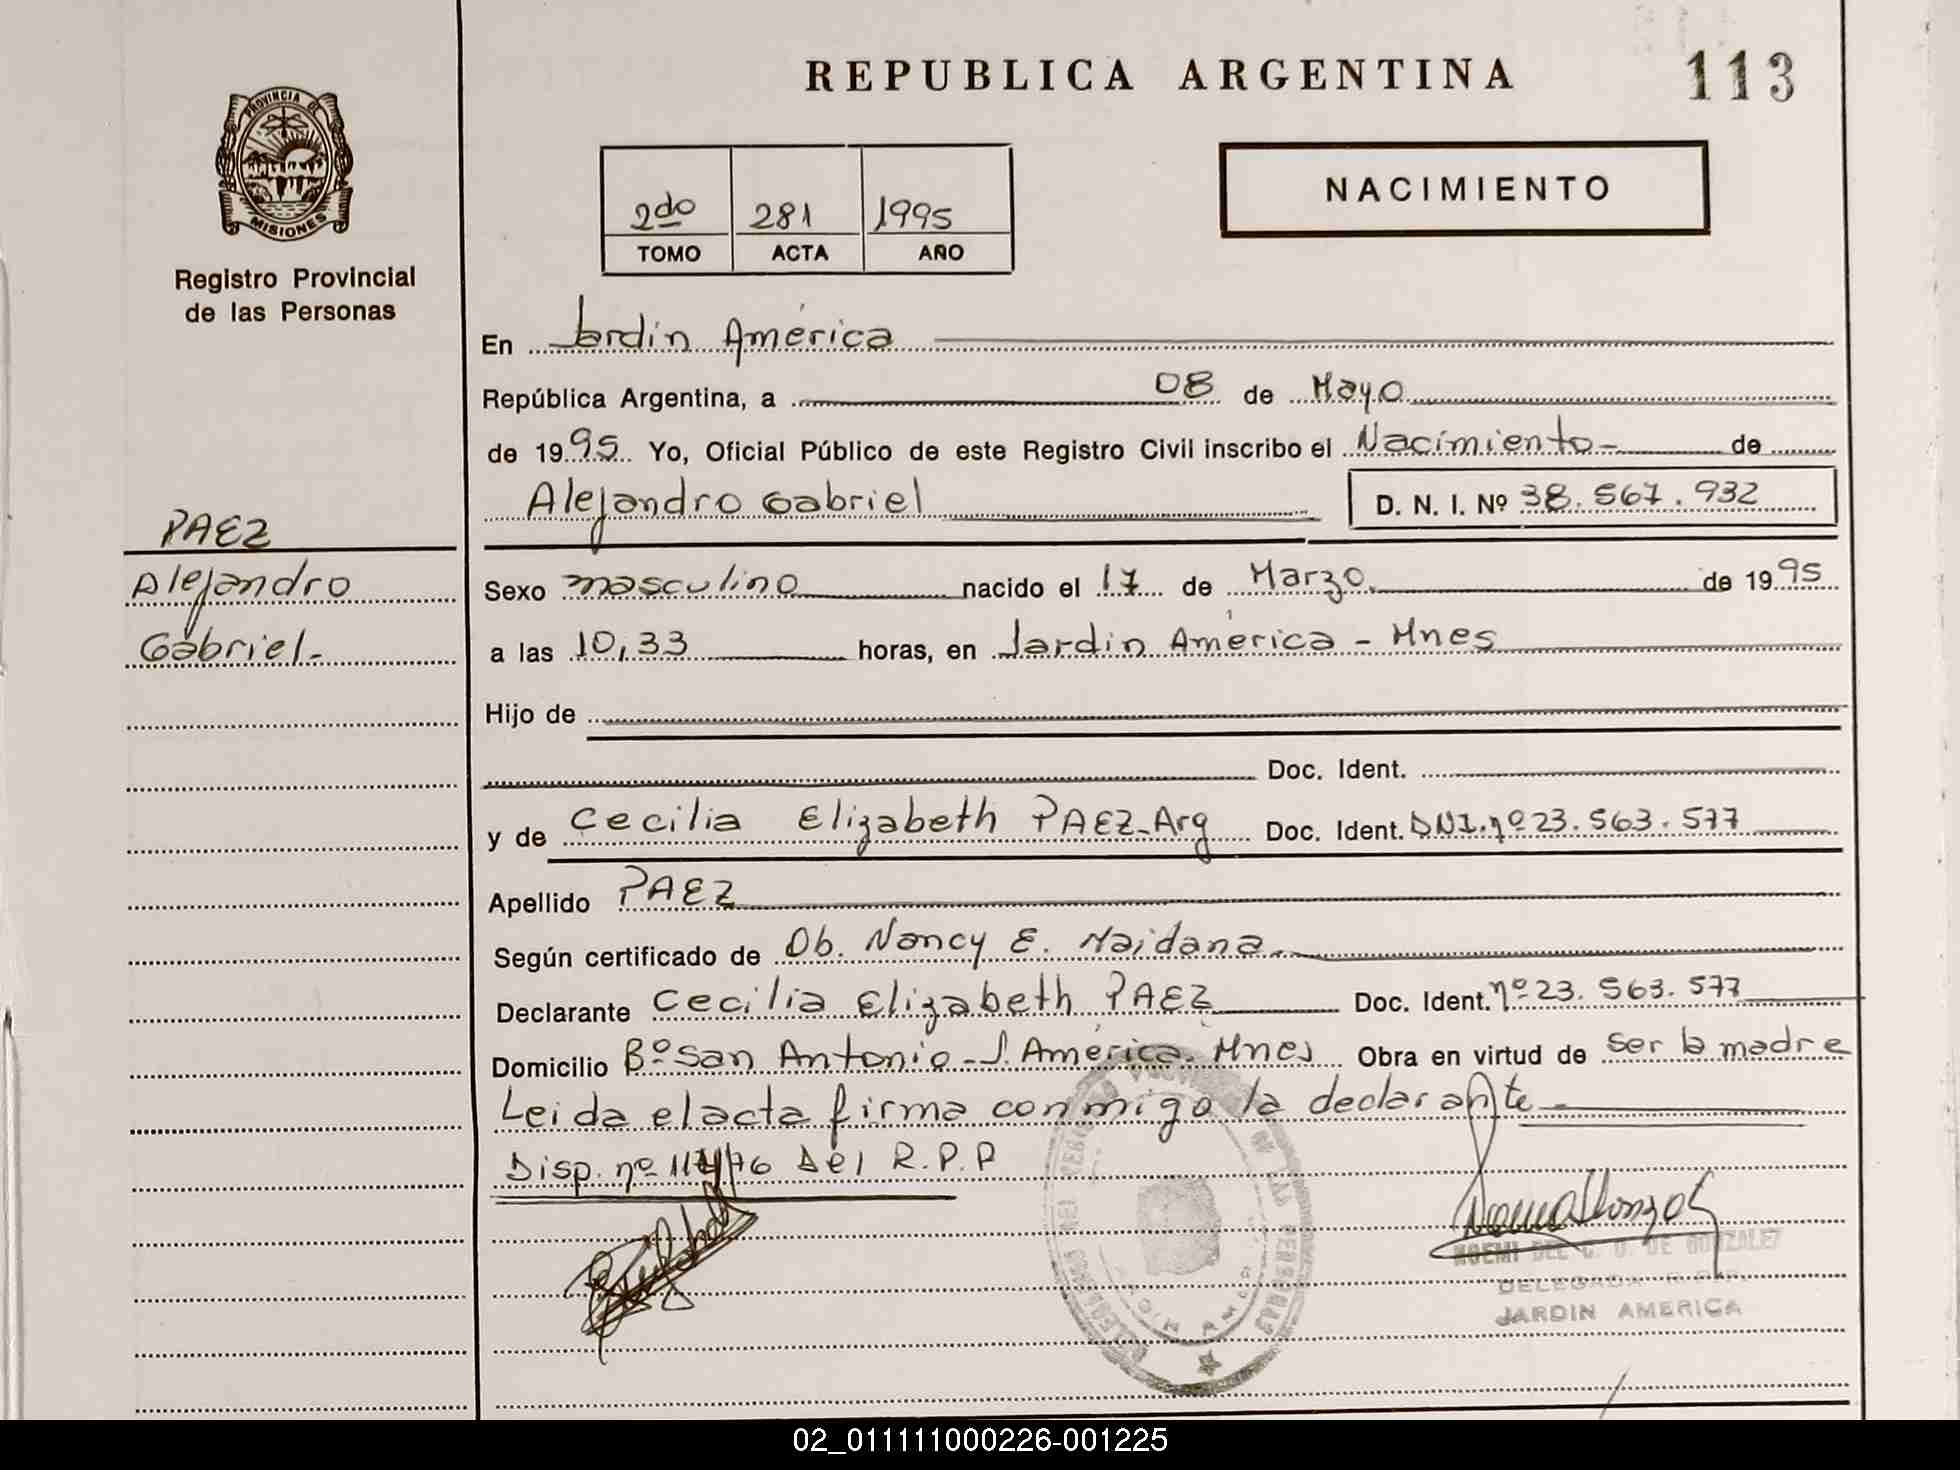 REPUBLICA ARGENTINA
113
PROVINCIA DE
MISIONES
Registro Provincial
de las Personas
2do 281 1995
TOMO ACTA AÑO
NACIMIENTO
En Jardín América
República Argentina, a 08 de Mayo
de 1995 Yo, Oficial Público de este Registro Civil inscribo el Nacimiento de
Alejandro Gabriel D. N. I. Nº 38.567.932
PAEZ
Alejandro
Gabriel
Sexo masculino nacido el 17 de Marzo de 1995
a las 10,33 horas, en Jardín América - Mnes
Hijo de
Doc. Ident.
y de Cecilia Elizabeth PAEZ-Arg Doc. Ident. DNI.nº 23.563.577
Apellido PAEZ
Según certificado de Ob. Nancy E. Maidana
Declarante Cecilia Elizabeth PAEZ Doc. Ident. nº 23.563.577
Domicilio Bº San Antonio - J. América. Mnes Obra en virtud de ser la madre
Leida el acta firma conmigo la declarante
Disp. nº /76 del R.P.P
NOEMI DEL C. DE GONZALEZ
DELEGADA R.P.P.
JARDIN AMERICA
02_011111000226-001225